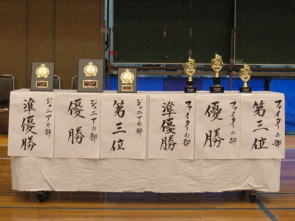 ジュニアの部
準優勝
ジュニアの部
優勝
ジュニアの部
第三位
ファイターの部
準優勝
ファイターの部
優勝
ファイターの部
第三位